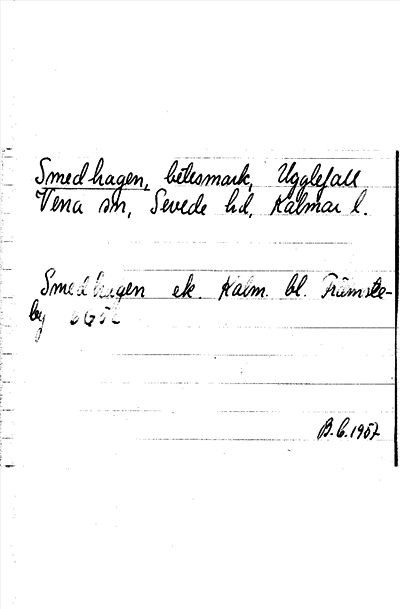 Smedhagen, betesmark, Ugglefall
Vena sn, Sevede hd, Kalmar l.
Smedhagen ek. Kalm. bl. Främste-
by 6G5c
B.C. 1957